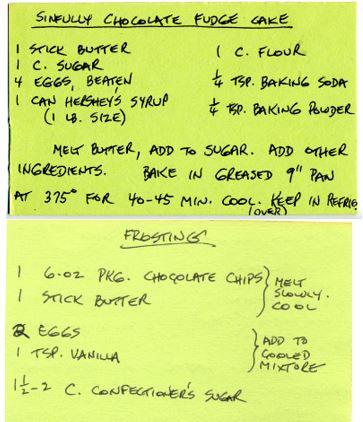 SINFULLY CHOCOLATE FUDGE CAKE
1 STICK BUTTER
1 C. SUGAR
4 EGGS, BEATEN
1 CAN HERSHEY'S SYRUP
(1 LB. SIZE)
1 C. FLOUR
1/4 TSP. BAKING SODA
1/4 TSP. BAKING POWDER
MELT BUTTER, ADD TO SUGAR. ADD OTHER
INGREDIENTS. BAKE IN GREASED 9" PAN
AT 375° FOR 40-45 MIN. COOL. KEEP IN REFRIG.
(OVER)
FROSTINGS
1 6-OZ PKG. CHOCOLATE CHIPS
1 STICK BUTTER
MELT
SLOWLY.
COOL
2 EGGS
1 TSP. VANILLA
ADD TO
COOLED
MIXTURE
1 1/2-2 C. CONFECTIONER'S SUGAR